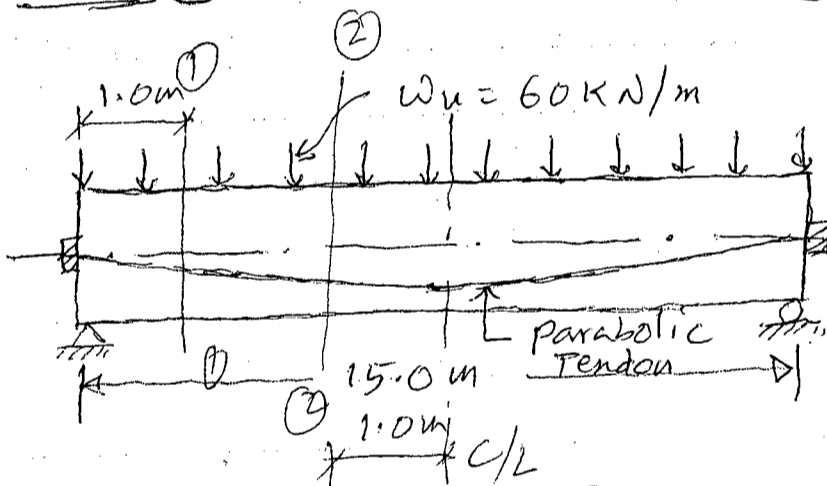 ②
①
1.0m
Wu = 60KN/m
parabolic
Tendon
①
15.0 m
②
1.0m
C/L